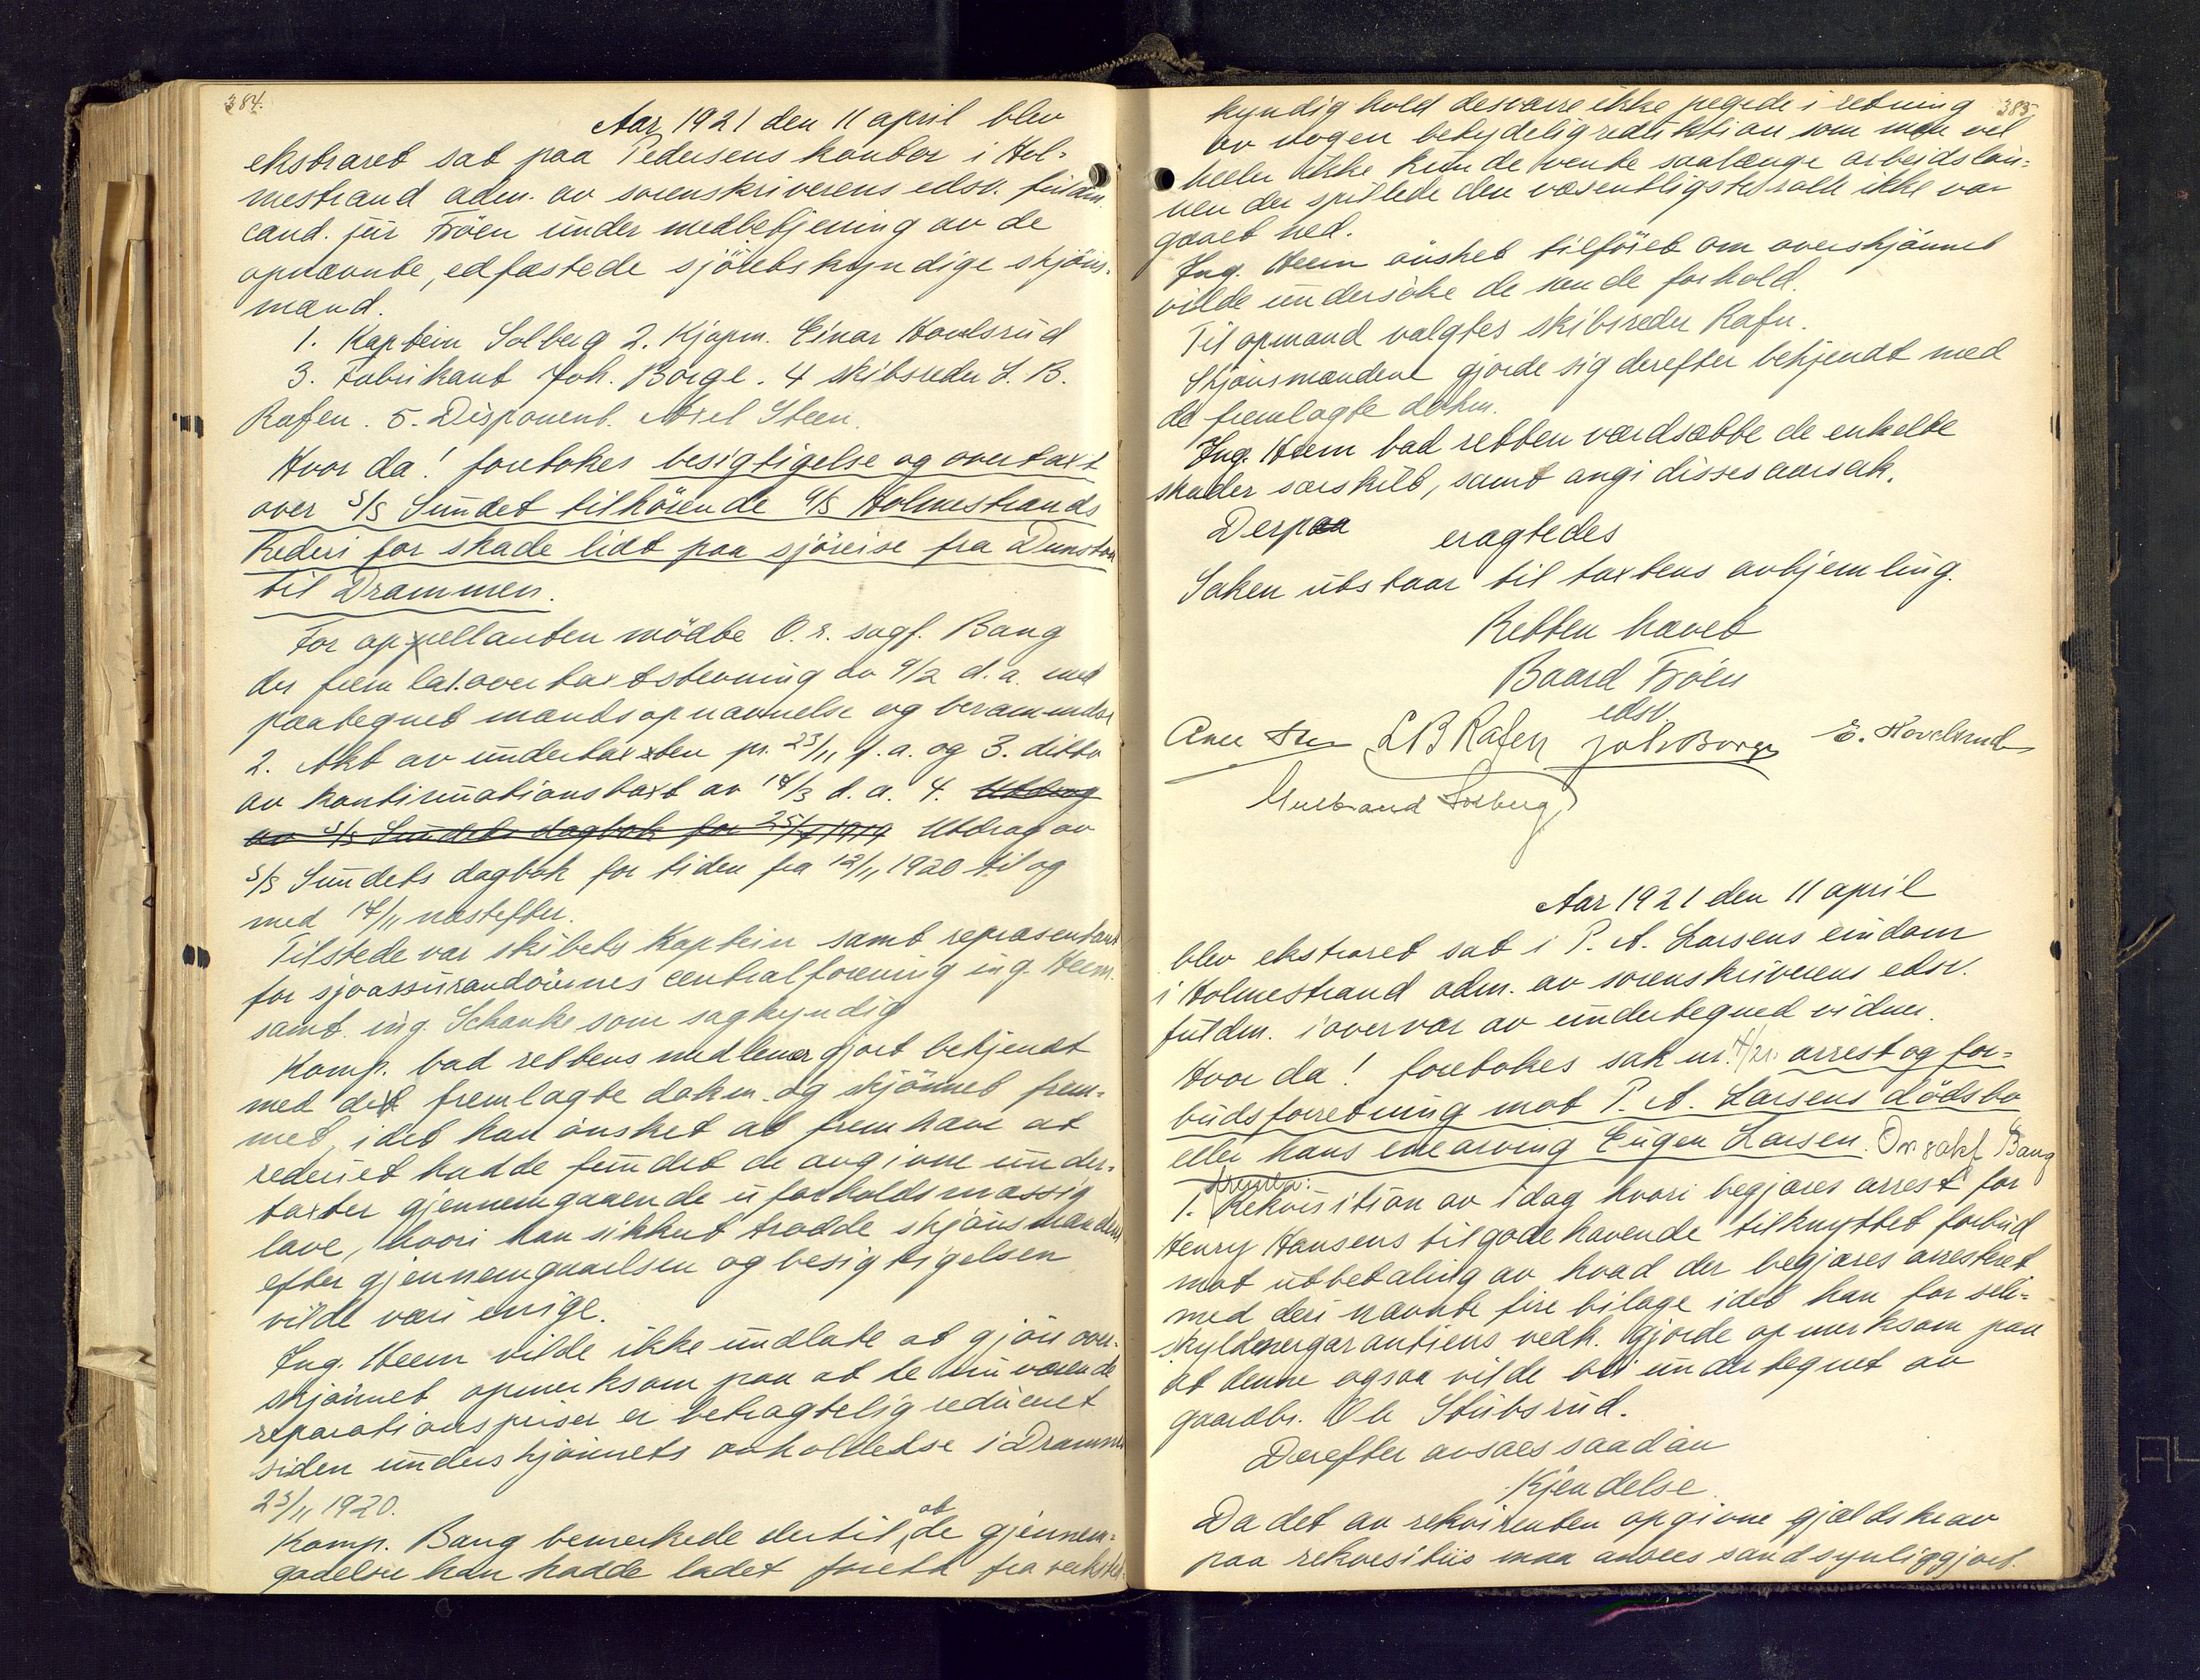 384.
Aar 1921 den 11 april blev
ekstraret sat paa Pedersens kontor i Hol-
mestrand adm. av sorenskriverens edsv. fuldm.
cand. jur Fröen under medbetjening av de
opnævnte, edfæstede sjöretskyndige skjöns-
mænd.
1. Kaptein Solberg 2. Kjøpm. Einar Hovlsrud
3. Fabrikant Joh. Borge. 4 skibsreder L. B.
Rafen. 5. Disponent. Axel Steen.
Hvor da! foretokes besigtigelse og overtaxt
over s/s Sundet tilhörende a/s Holmestrands
Rederi for skade lidt paa sjöreise fra Dunston
til Drammen.
For appellanten mödte O.r. sagf. Bang
der frem la 1. overtaxtstevning av 9/2 d.a. med
paategnet mandsopnævnelse og berammelse
2. Akt av undertaxten pr. 23/11 f.a. og 3. ditto
av kontinuationstaxt av 14/3 d.a. 4. Utdrag
av s/s Sundets dagbok for 25/7 1919 Utdrag av
s/s Sundets dagbok for tiden fra 12/11 1920 til og
med 14/11 næstefter.
Tilstede var skibets Kaptein samt repræsentant
for sjöassurandörernes centralforening ing. Heem.
samt. ing. Schanke som sagkyndig
Komp. bad rettens medlemer gjort bekjendt
med det fremlagte dokm. og skjönnet frem-
met, idet han önsket at fremhæve at
rederiet hadde fundet de angivne under-
taxter gjennemgaaende uforholdsmæssig
lave, hvori han sikkert trodde skjönsmændene
efter gjennemgaaelsen og besigtigelsen
vilde være enige.
Ing. Heem vilde ikke undlate at gjöre over-
skjönnet opmerksom paa at de nuværende
reparationspriser er betragtelig reduceret
siden underskjönnets avholdelse i Drammen
23/11 1920.
Komp. Bang bemerkede dertil, at de gjennem-
gaaelser han hadde ladet foreta fra verksted-
385
kyndig hold desværre ikke pegede i retning
av nogen betydelig reduktion som man vel
heller ikke kunde vente saalænge arbeidslön-
nen der spillede den væsentligste rolle ikke var
gaaet ned.
Ing. Heem önsket tilföiet om overskjönnet
vilde undersöke de sende forhold.
Til opmand valgtes skibsreder Rafn.
Skjönsmændene gjorde sig derefter bekjendt med
de fremlagte dokm.
Ing. Heem bad retten værdsætte de enkelte
skader særskilt, samt angi disses aarsak.
Derpaa eragtedes
Saken utstaar til taxtens avhjemling.
Retten hævet
Baard Fröen
edsv.
L B Rafen Joh Borge E. Hovelsrud
Gulbrand Solberg
Aar 1921 den 11 april
blev ekstraret sat i P. A. Larsens eindom
i Holmestrand adm. av sorenskriverens edsv.
fuldm. i overvær av undertegned vidner.
Hvor da! foretokes sak nr. 4/21. arrest og for-
budsforretning mot P. A. Larsens dödsbo
eller hans enearving Eugen Larsen. Or. sakf Bang
fremla:
1. Rekvisition av idag hvori begjæres arrest for
Henry Hansens tilgodehavende tilknyttet forbud
mot utbetaling av hvad der begjæres arresteret
med deri nævnte fire bilage idet han for selv-
skyldnergarantiens vedk. gjorde opmerksom paa
at denne ogsaa vilde bli undertegnet av
gaardbr. Ole Stubsrud.
Derefter avsaes saadan
Kjendelse
Da det av rekvirenten opgivne gjældskrav
paa rekvisitus maa ansees sandsynliggjort.